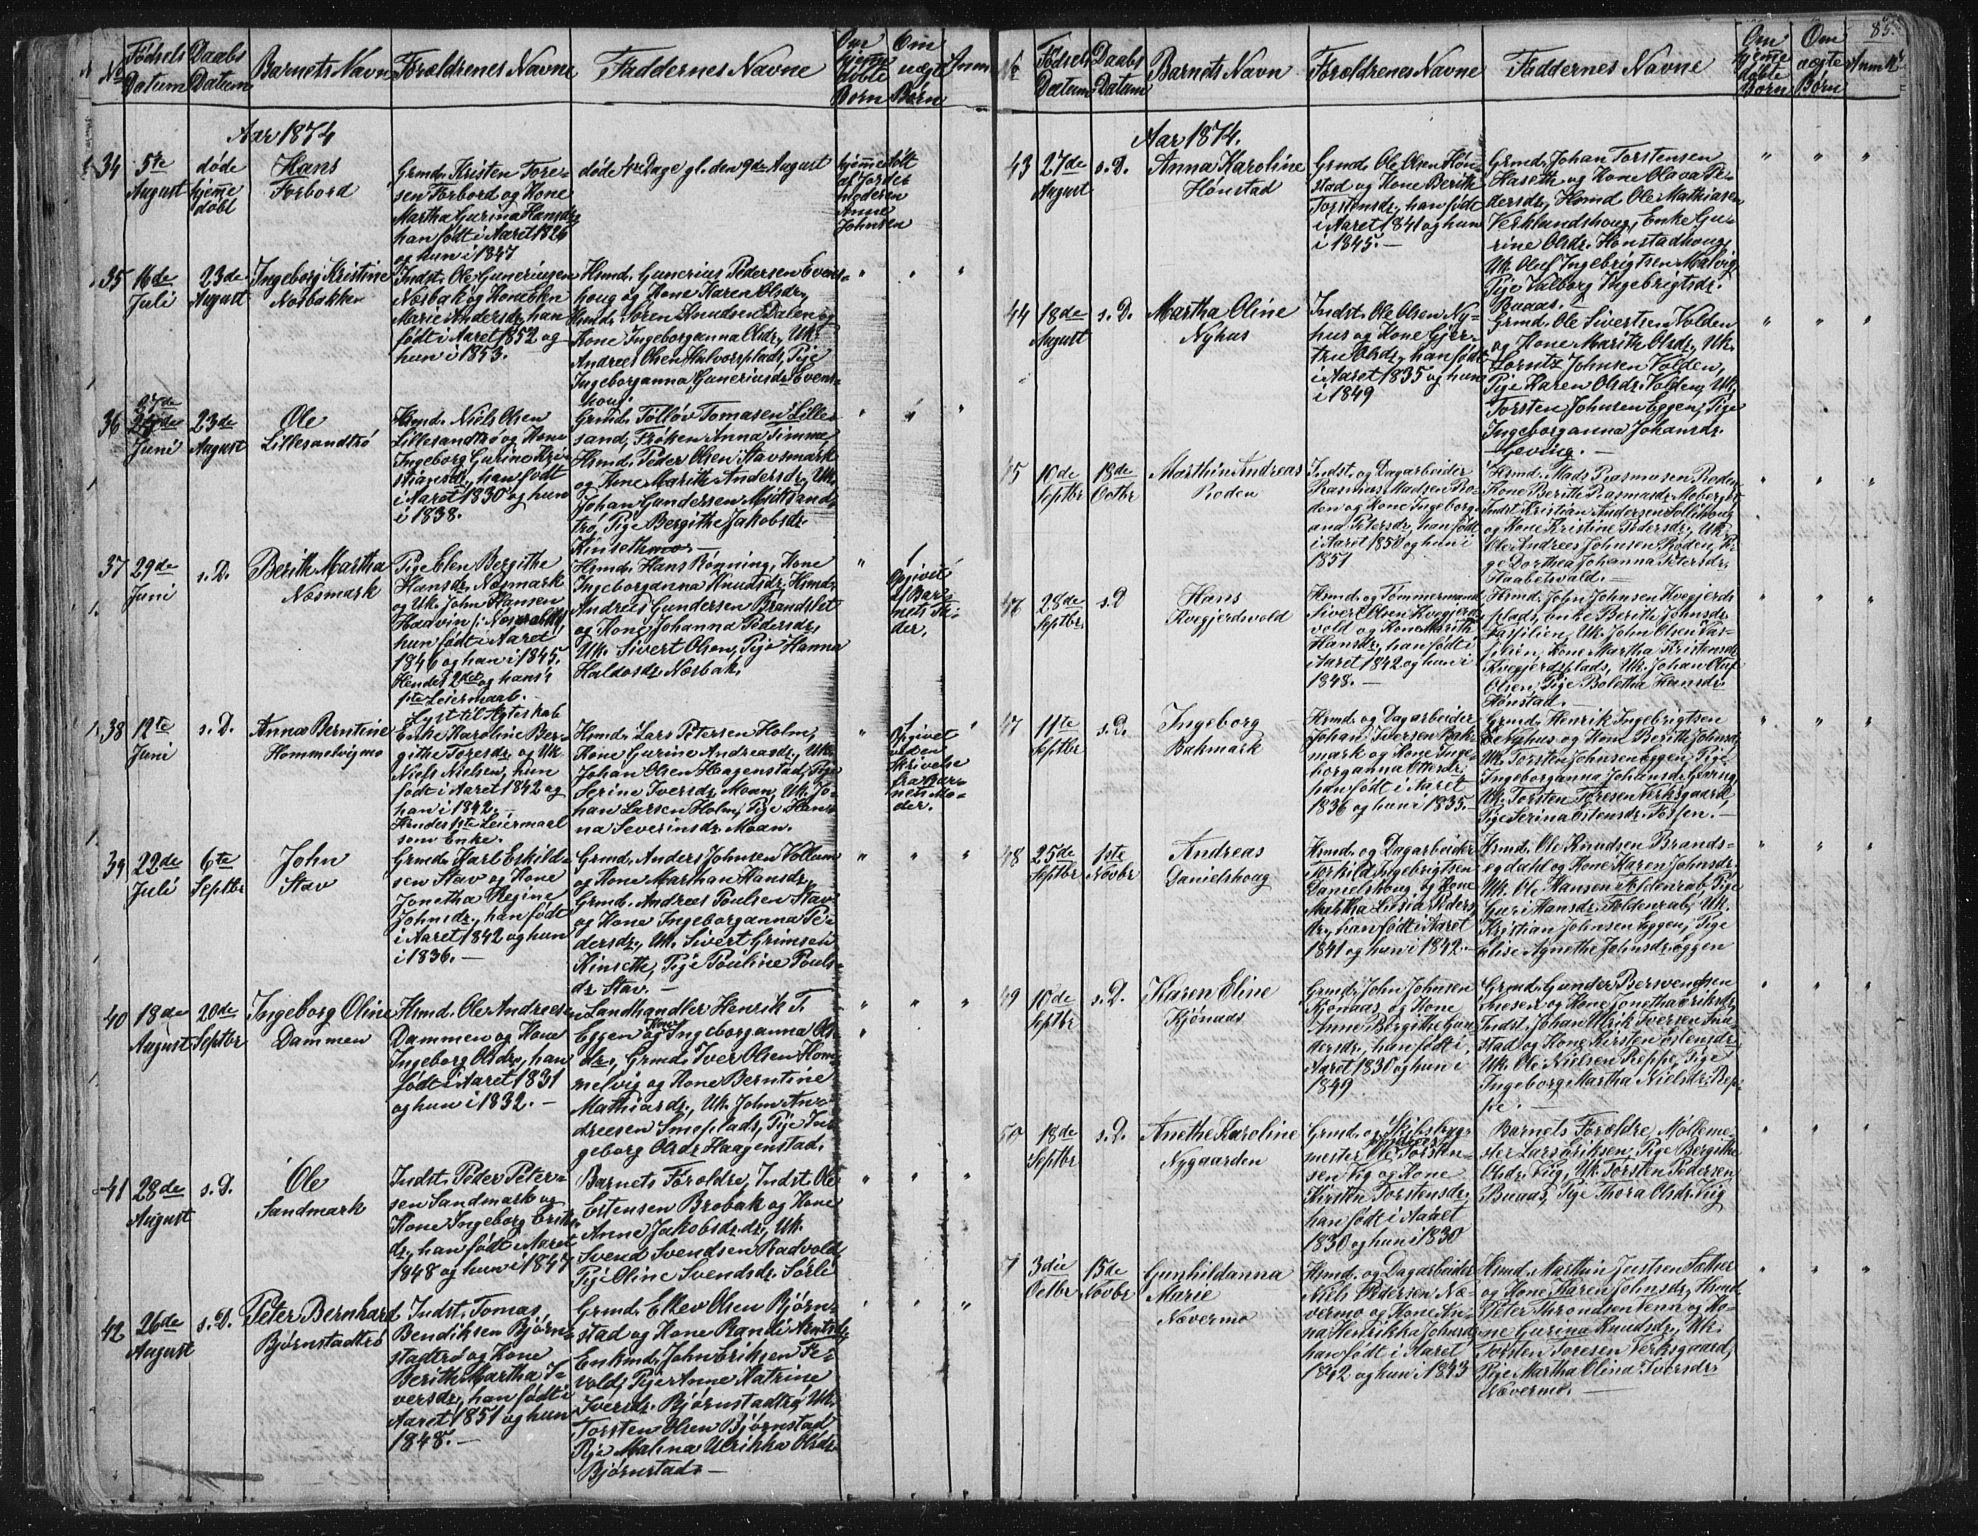 85.
№ Fødsels Datum
Daabs Datum
Barnets Navn
Forældrenes Navne
Faddernes Navne
Om hjemme døbte Børn
Om uægte Børn
Anm
Aar 1874
34 5te August
døde hjemedøbt
Hans
Forbord
Grmd. Kristen Tore-
sen Forbord og Kone
Martha Gurina Hansdr,
han født i Aaret 1826
og hun i 1847
døde 4re Dage gl. den 9de August
hjemedøbt
af Jorde-
moderen
Anne
Johnsen
35 16de Juli
23de August
Ingeborg Kristine
Næsbakken
Indst. Ole Guneriusen
Næsbak og Kone Elen
Marie Andersdr, han
født i Aaret 1852 og
hun i 1853.
Hsmd. Gunerius Pedersen Evens-
houg og Kone Karen Olsdr,
Hsmd. Søren Knudsen Dalen og
Kone Ingeborganna Olsdr, Uk.
Andreas Olsen Halvorsplads, Pige
Ingeborganna Guneriusdr. Evens-
houg.
36 27de Juni
23de August
Ole
Lillesandtrø
Hsmd. Niels Olsen
Lillesandtrø og Kone
Ingeborg Gurine Kri-
stiansdr, han født
i Aaret 1830 og hun
i 1838.
Grmd. Tølløv Tomasen Lille-
sand, Frøken Anna Timme
Hsmd. Peder Olsen Stavsmark
og Kone Marith Andersdr, Uk.
Johan Gundersen Midtsand-
trø, Pige Bergithe Jakobsdr.
Kinsethmo.
37 29de Juni
s. D.
Berith Martha
Næsmark
Pige Elen Bergithe
Hansdr. Næsmark
og Uk. John Hansen
Haavin
hun født i Aaret
1846 og han i 1845.
Hendes 2det og hans
1ste Leiermaal.
Hsmd. Hans Rønning, Kone
Ingeborganna Knudsdr, Hsmd.
Andreas Gundersen Brandslet
og Kone Johanna Pedersdr,
Uk. Sivert Olsen, Pige Hanna
Haldosdr. Næsbak.
1
Opgivet
af Bar-
nets Mo-
der.
38 12te Juni
s. D.
Anna Berntine
Hommelvigmo
Lyst til Ægteskab
Enke Karoline Ber-
githe Toresdr. og Uk.
Niels Nielsen, hun
født i Aaret 1842 og
han i 1842.
Hendes 1ste Leiermaal
som Enke.
Hsmd. Lars Petersen Holm,
Kone Gurine Andreasdr, Uk.
Johan Olsen Haagenstad, Pige
Serine Iversdr. Moan, Uk. Jo-
han Larsen Holm, Pige Han-
na Severinsdr. Moan.
Opgivet
ved en
Skrivelse
fra Bar-
nets Mo-
der.
39 22de Juli
6te Septbr
John
Stav
Grmd. Karl Eskild-
sen Stav og Kone
Jonetha Regine
Johnsdr, han født
i Aaret 1842 og hun
i 1836.
Grmd. Anders Johnsen Vollum
og Kone Marthan Hansdr,
Grmd. Andreas Poulsen Stav
og Kone Ingeborganna Pe-
dersdr, Uk. Sivert Grimsen
Kinseth, Pige Pouline Pouls-
dr. Stav.
40 18de August
20de Septbr
Ingeborg Oline
Dammen
Hsmd. Ole Andreasen
Dammen og Kone
Ingeborg Olsdr, han
født i Aaret 1831
og hun i 1832.
Landhandler Henrik T.
Eggen og Kone Ingeborganna Ols-
dr, Grmd. Iver Olsen Hom-
melvig og Kone Berntine
Mathiasdr, Uk. John An-
dreesen Smeplads, Pige In-
geborg Olsdr. Haagenstad.
41 28de August
s. D.
Ole
Sandmark
Indst. Peder Peter-
sen Sandmark og
Kone Ingeborg Eriks-
dr, han født i Aaret
1848 og hun i 1847
Barnets Forældre, Indst. Ole
Estensen Brobak og Kone
Anne Jakobsdr, Uk.
Svend Svendsen Rødvold
Pige Oline Svendsdr. Sørli
42 26de August
s. D.
Peter Bernhard
Bjørnstadtrø
Indst. Tomas
Bendiksen Bjørn-
stadtrø og Kone
Berith Martha I-
versdr, han født i
Aaret 1851 og hun
1848.
Grmd. Ellev Olsen Bjørn-
stad og Kone Randi Arntsdr,
Enkmd. John Eriksen Fe-
vold, Pige Anne Katrine
Iversdr. Bjørnstadtrø, Uk.
Torsten Olsen Bjørnstad
Pige Malina Ulrikka Olsdr.
Bjørnstad.
№ Fødsels Datum
Daabs Datum
Barnets Navn
Forældrenes Navne
Faddernes Navne
Om hjemme døbte Børn
Om uægte Børn
Anmk
Aar 1874.
43 27de August
s. D.
Anna Karoline
Hønstad
Grmd. Ole Olsen Høn-
stad og Kone Berith
Torstensdr, han født
i Aaret 1841 og hun
i 1845.
Grmd. Johan Torstensen
Haseth og Kone Olava Pe-
dersdr, Hsmd. Ole Mathiasen
Verklandshoug, Enke Gu-
rine Olsdr. Hønstadhoug,
Uk. Oluf Ingebrigtsen Malvig
Pige Valborg Ingebrigtsdr.
Buaas.
44 18de August
s. D.
Martha Oline
Nyhus
Indst. Ole Olsen Ny-
hus og Kone Gjer-
tru Olsdr, han født
i Aaret 1835 og hun
i 1849
Grmd. Ole Sivertsen Volden
og Kone Marith Olsdr, Uk.
Lornts Johnsen Volden,
Pige Karen Olsdr. Volden, Uk.
Torsten Johnsen Eggen, Pige
Ingeborganna Johansdr.
Geving.
45 10de Septbr
18de Octbr
Marthin Andreas
Roden
Indst. og Dagarbeider
Rasmus Madsen Ro-
den og Kone Ingeborg-
ana Petersdr, han født
i Aaret 1850 og hun i
1851
Hsmd. Mads Rasmusen Roden
Kone Berith Rasmusdr. Moberget
Indst. Kristian Andersen Sollihoug
og Kone Kristine Pedersdr, Uk.
Ole Andreas Johnsen Roden, Pi-
ge Dorthea Johanna Petersdr.
Haabetsvald.
46 28de Septbr
s. D
Hans
Kvegjerdsvold
Hsmd. og Tømmermand
Sivert Olsen Kvegjerds-
vold og Kone Marith
Hansdr, han født i
Aaret 1842 og hun i
1848.
Hsmd. John Johnsen Kvegjerds-
plads, enke Berith Johnsdr.
Vasfilien, Uk. John Olsen Vas-
filien, Kone Martha Kristensdr.
Kvegjerdsplads, Uk. Johan Oluf
Olsen, Pige Boletha Hansdr.
Hønstad.
47 11te Septbr
s. D.
Ingeborg
Bakmark
Hsmd. og Dagarbeider
Johan Iversen Bak-
mark og Kone Inge-
borganna Ottersdr,
han født i Aaret
1836 og hun i 1835.
Grmd. Henrik Ingebrigtsen
Nyhus og Kone Berith Johnsdr,
Uk. Torsten Johnsen Eggen, Pige
Ingeborganna Johansdr. Geving,
Uk. Torsten Toresen Verksgaard,
Pige Serina Estensdr. Fossen.
48 25de Septbr
1ste Novbr
Andreas
Danielshoug
Hsmd. og Dagarbeider
Torkild Ingebrigtsen
Danielshoug og Kone
Martha Lovisa Peders-
dr, han født i Aaret
1841 og hun i 1842.
Hsmd. Ole Knudsen Brands-
egdahl og Kone Karen Johnsdr.
Uk. Ole Hansen Foldenrab, Pige
Guri Hansdr. Foldenrab, Uk.
Kristian Johnsen Eggen, Pige
Elise Agnethe Johnsdr. Eggen
49 10de Septbr
s. D.
Karen Eline
Kjønaas
Grmd. John Johnsen
Kjønaas og Kone
Anne Bergithe Gun-
dersdr, han født i
Aaret 1830 og hun i
1849
Grmd. Gunder Bersvendsen
og Kone Jonetha Eriksdr,
Indst. Johan Ulrik Iversen
stad og Kone Kirsten Estensdr.
Uk. Ole Nielsen Reppe, Pige
Ingeborg Martha Nielsdr. Rep-
pe.
50 18de Septbr
s. D.
Anethe Karoline
Nygaarden
Grmd. og Skibsbyg-
mester Ole Andreas Torsten-
sen Vig og Kone
Kirsten Torstensdr,
han født i Aaret
1830 og hun i 1830
Barnets Forældre, Møllema-
ster Lars Eriksen, Pige Bergithe
Olsdr. Viig, Uk. Torsten Pedersen
Buaas, Pige Thora Olsdr. Viig
3die Octbr
15de Novbr
Gunhildanna
Marie
Nævermo
Hsmd. og Dagarbeider
Niels Pedersen Næ-
vermo og Kone An-
na Henrikka Johnsdr,
han født i Aaret
1842 og hun i 1843
Hsmd. Marthin Justsen Sæther
og Kone Karen Johnsdr, Hsmd.
Peter Throndsen Venn og Ko-
ne Gurina Knudsdr, Uk.
Torsten Toresen Verksgaard,
Pige Martha Olina Iversdr.
Nævermo.